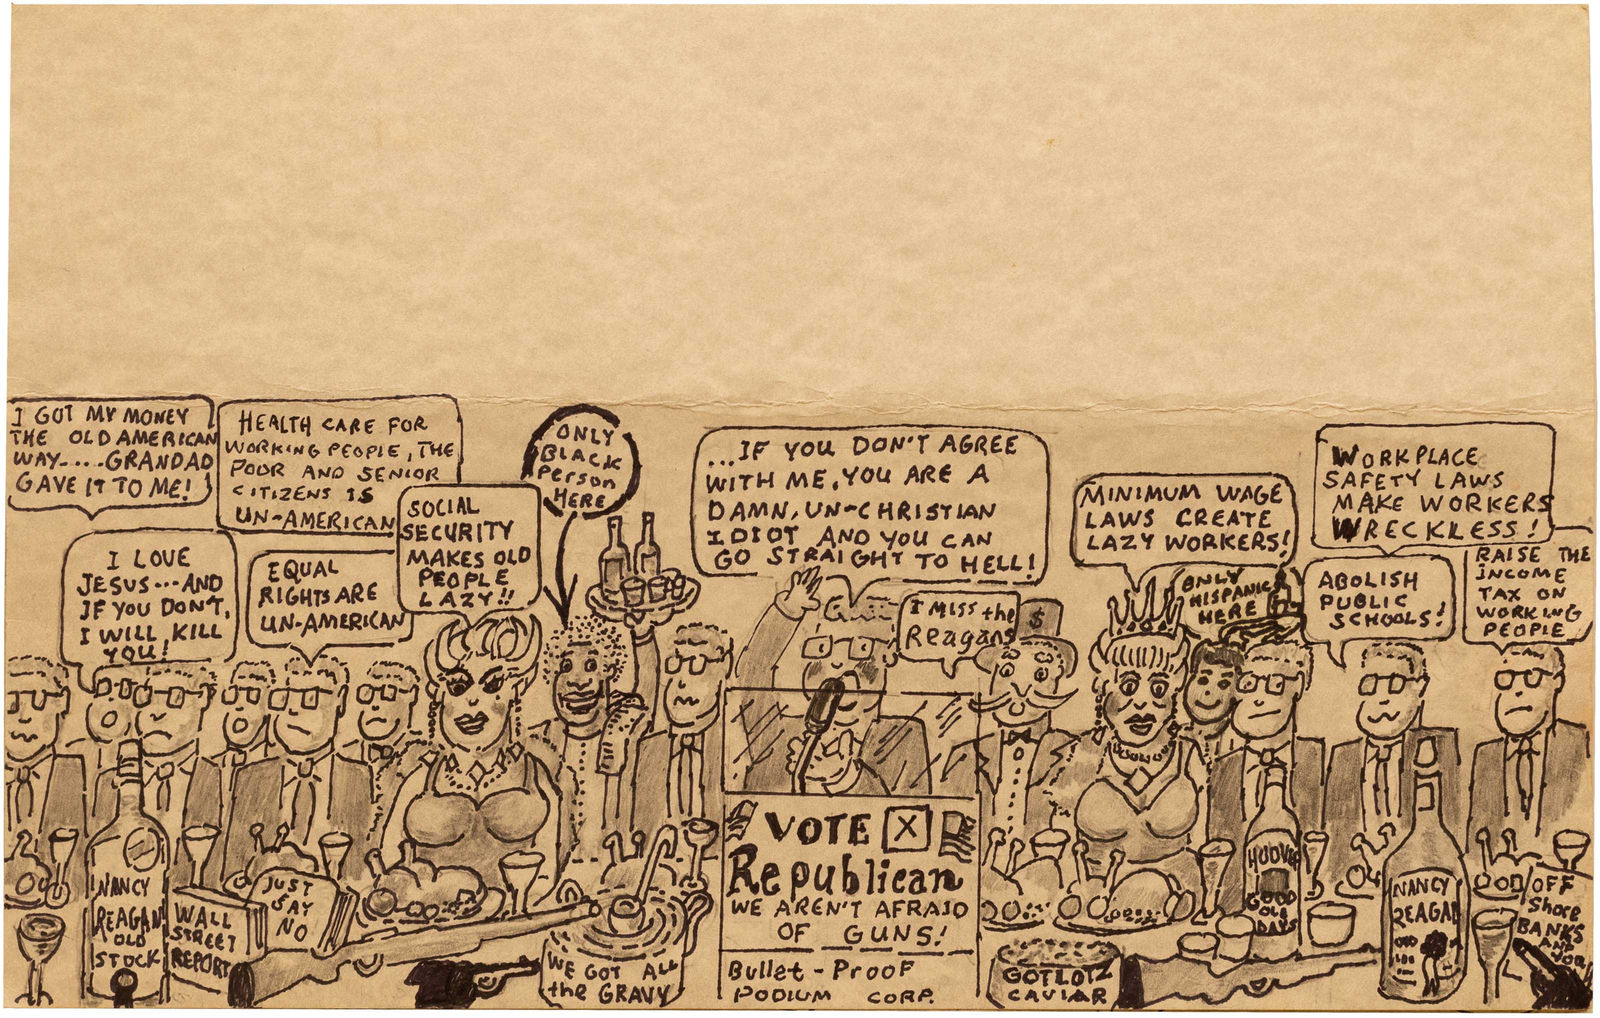 I GOT MY MONEY
THE OLD AMERICAN
WAY....GRANDAD
GAVE IT TO ME!
HEALTH CARE FOR
WORKING PEOPLE, THE
POOR AND SENIOR
CITIZENS IS
UN-AMERICAN
I LOVE
JESUS...AND
IF YOU DON'T,
I WILL KILL
YOU!
EQUAL
RIGHTS ARE
UN-AMERICAN
SOCIAL
SECURITY
MAKES OLD
PEOPLE
LAZY!!
ONLY
BLACK
Person
HERE
...IF YOU DON'T AGREE
WITH ME, YOU ARE A
DAMN, UN-CHRISTIAN
IDIOT AND YOU CAN
GO STRAIGHT TO HELL!
I MISS the
Reagans
$
MINIMUM WAGE
LAWS CREATE
LAZY WORKERS!
ONLY
HISPANIC
HERE
WORKPLACE
SAFETY LAWS
MAKE WORKERS
WRECKLESS!
ABOLISH
PUBLIC
SCHOOLS!
RAISE THE
INCOME
TAX ON
WORKING
PEOPLE
NANCY
REAGAN
OLD
STOCK
WALL
STREET
REPORT
JUST
SAY
NO
WE GOT ALL
the GRAVY
VOTE X
Republican
WE AREN'T AFRAID
OF GUNS!
Bullet-Proof
PODIUM CORP.
GOTLOTZ
CAVIAR
HOOVER
GOOD
OLE
DAYS
NANCY
REAGAN
OFF
Shore
BANKS
AND
YOU